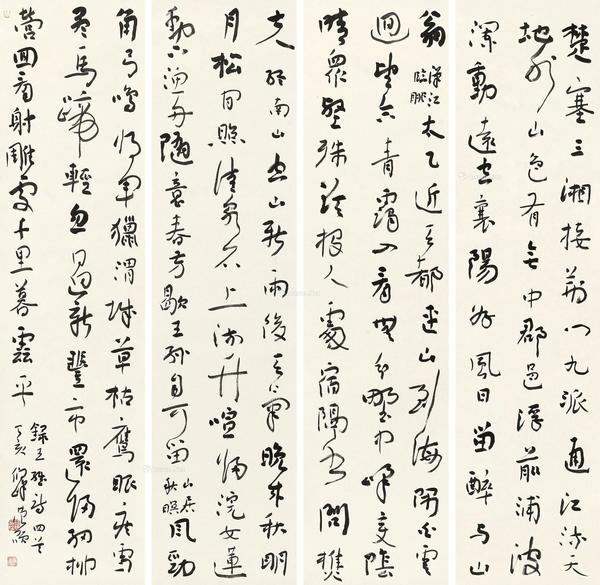 楚塞三湘接荆门九派通江流天
地外山色有無中郡邑浮前浦波
澜動遠空襄陽好風日留醉与山
翁 漢江臨眺 太乙近天都連山到海隅白雲
迴望合青靄入看無分野中峰變陰
晴衆壑殊欲投人處宿隔水問樵
夫 終南山 空山新雨後天氣晚來秋明
月松间照清泉石上流竹喧归浣女蓮
動下漁舟隨意春芳歇王孫自可留 山居秋暝 風勁
角弓鳴将軍獵渭城草枯鷹眼疾雪
盡馬蹄輕忽過新豐市還归细柳
營回看射雕處千里暮雲平
錄王維詩四首
丁亥